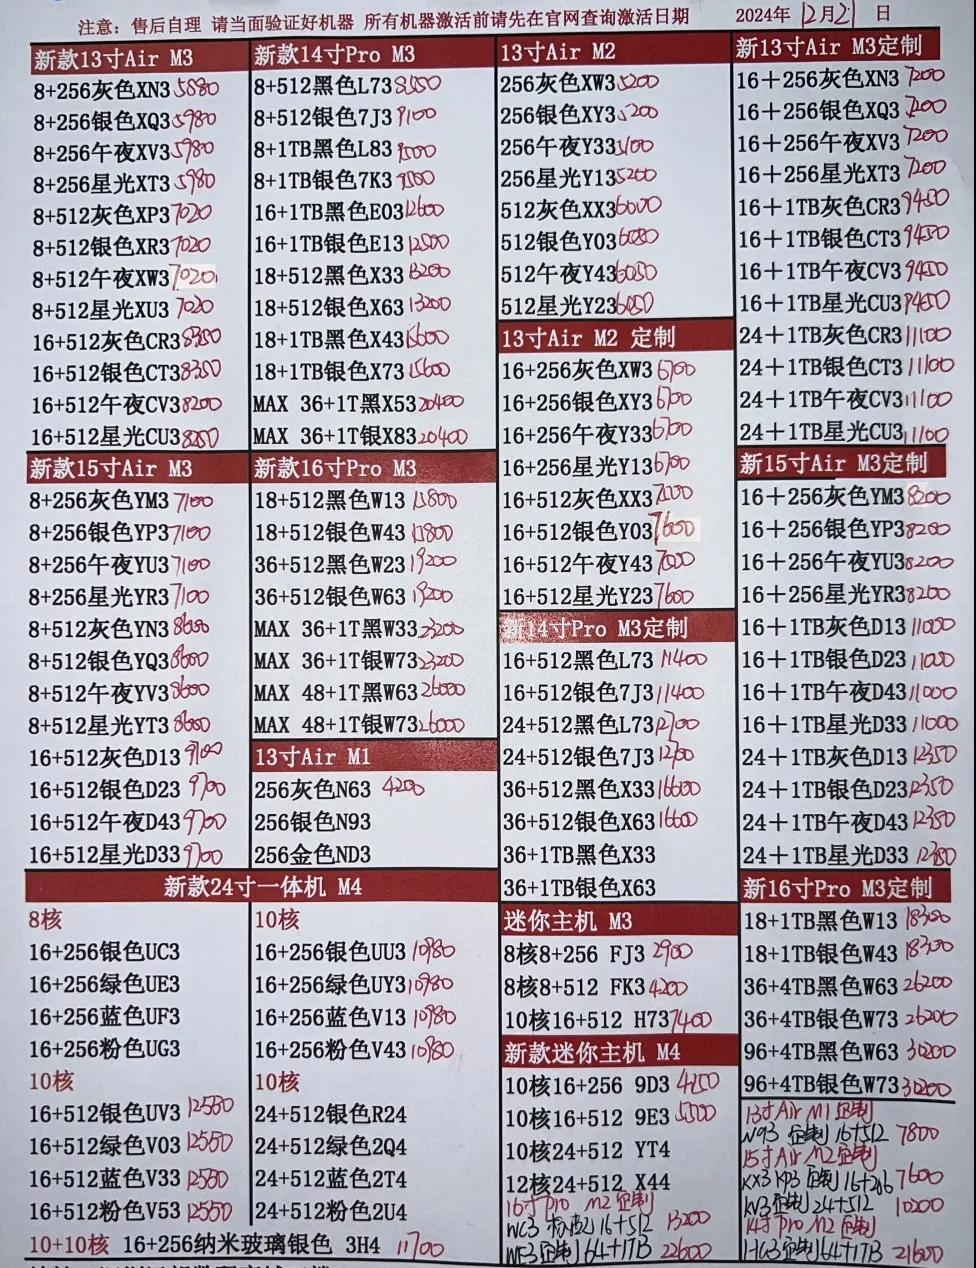 注意：售后自理 请当面验证好机器 所有机器激活前请先在官网查询激活日期 2024年 12月21日
新款13寸Air M3
8+256灰色XN3 5880
8+256银色XQ3 5980
8+256午夜XV3 5980
8+256星光XT3 5980
8+512灰色XP3 7020
8+512银色XR3 7020
8+512午夜XW3 7020
8+512星光XU3 7020
16+512灰色CR3 8350
16+512银色CT3 8350
16+512午夜CV3 8200
16+512星光CU3 8250
新款15寸Air M3
8+256灰色YM3 7100
8+256银色YP3 7100
8+256午夜YU3 7100
8+256星光YR3 7100
8+512灰色YN3 8600
8+512银色YQ3 8600
8+512午夜YV3 8600
8+512星光YT3 8600
16+512灰色D13 9700
16+512银色D23 9700
16+512午夜D43 9700
16+512星光D33 9700
新款14寸Pro M3
8+512黑色L73
8+512银色7J3 9100
8+1TB黑色L83
8+1TB银色7K3
16+1TB黑色E03 12600
16+1TB银色E13 12500
18+512黑色X33 13200
18+512银色X63 13200
18+1TB黑色X43 15600
18+1TB银色X73 15600
MAX 36+1T黑X53 20400
MAX 36+1T银X83 20400
新款16寸Pro M3
18+512黑色W13 15800
18+512银色W43 15800
36+512黑色W23 19200
36+512银色W63 19200
MAX 36+1T黑W33 23200
MAX 36+1T银W73 23200
MAX 48+1T黑W63 26000
MAX 48+1T银W73 26000
13寸Air M1
256灰色N63 4200
256银色N93
256金色ND3
新款24寸一体机 M4
8核
16+256银色UC3
16+256绿色UE3
16+256蓝色UF3
16+256粉色UG3
10核
16+512银色UV3 12550
16+512绿色V03 12550
16+512蓝色V33 12550
16+512粉色V53 12550
10核
16+256银色UU3 10980
16+256绿色UY3 10980
16+256蓝色V13 10980
16+256粉色V43 10980
10核
24+512银色R24
24+512绿色2Q4
24+512蓝色2T4
24+512粉色2U4
10+10核 16+256纳米玻璃银色 3H4 11700
13寸Air M2
256灰色XW3 5200
256银色XY3 5200
256午夜Y33 5100
256星光Y13 5200
512灰色XX3 6000
512银色Y03 6080
512午夜Y43 6050
512星光Y23 6050
13寸Air M2 定制
16+256灰色XW3 6700
16+256银色XY3 6700
16+256午夜Y33 6700
16+256星光Y13 6700
16+512灰色XX3
16+512银色Y03 7600
16+512午夜Y43
16+512星光Y23 7600
新14寸Pro M3定制
16+512黑色L73 11400
16+512银色7J3 11400
24+512黑色L73 12700
24+512银色7J3 12700
36+512黑色X33 16600
36+512银色X63 16600
36+1TB黑色X33
36+1TB银色X63
迷你主机 M3
8核8+256 FJ3 2900
8核8+512 FK3 4200
10核16+512 H73 7400
新款迷你主机 M4
10核16+256 9D3 4150
10核16+512 9E3 5500
10核24+512 YT4
12核24+512 X44
16寸Pro M2定制
WC3 16+512 13200
WE3定制64+1TB 22600
新13寸Air M3定制
16＋256灰色XN3 7200
16＋256银色XQ3 7200
16＋256午夜XV3 7200
16＋256星光XT3 7200
16＋1TB灰色CR3 9450
16＋1TB银色CT3 9450
16＋1TB午夜CV3 9450
16＋1TB星光CU3 9450
24＋1TB灰色CR3 11100
24＋1TB银色CT3 11100
24＋1TB午夜CV3 11100
24＋1TB星光CU3 11100
新15寸Air M3定制
16＋256灰色YM3 8200
16＋256银色YP3 8200
16＋256午夜YU3 8200
16＋256星光YR3 8200
16＋1TB灰色D13 11000
16＋1TB银色D23 11000
16＋1TB午夜D43 11000
16＋1TB星光D33 11000
24＋1TB灰色D13 12350
24＋1TB银色D23 12350
24＋1TB午夜D43 12350
24＋1TB星光D33 12350
新16寸Pro M3定制
18+1TB黑色W13 18300
18+1TB银色W43 18300
36+4TB黑色W63 26200
36+4TB银色W73 26200
96+4TB黑色W63 30200
96+4TB银色W73 30200
13寸Air M1定制
N93 定制 16+512 7800
15寸Air M2定制
KX3 KP3 定制 16+256 7600
KV3定制 24+512 10200
14寸Pro M2定制
HG3定制64+1TB 21600